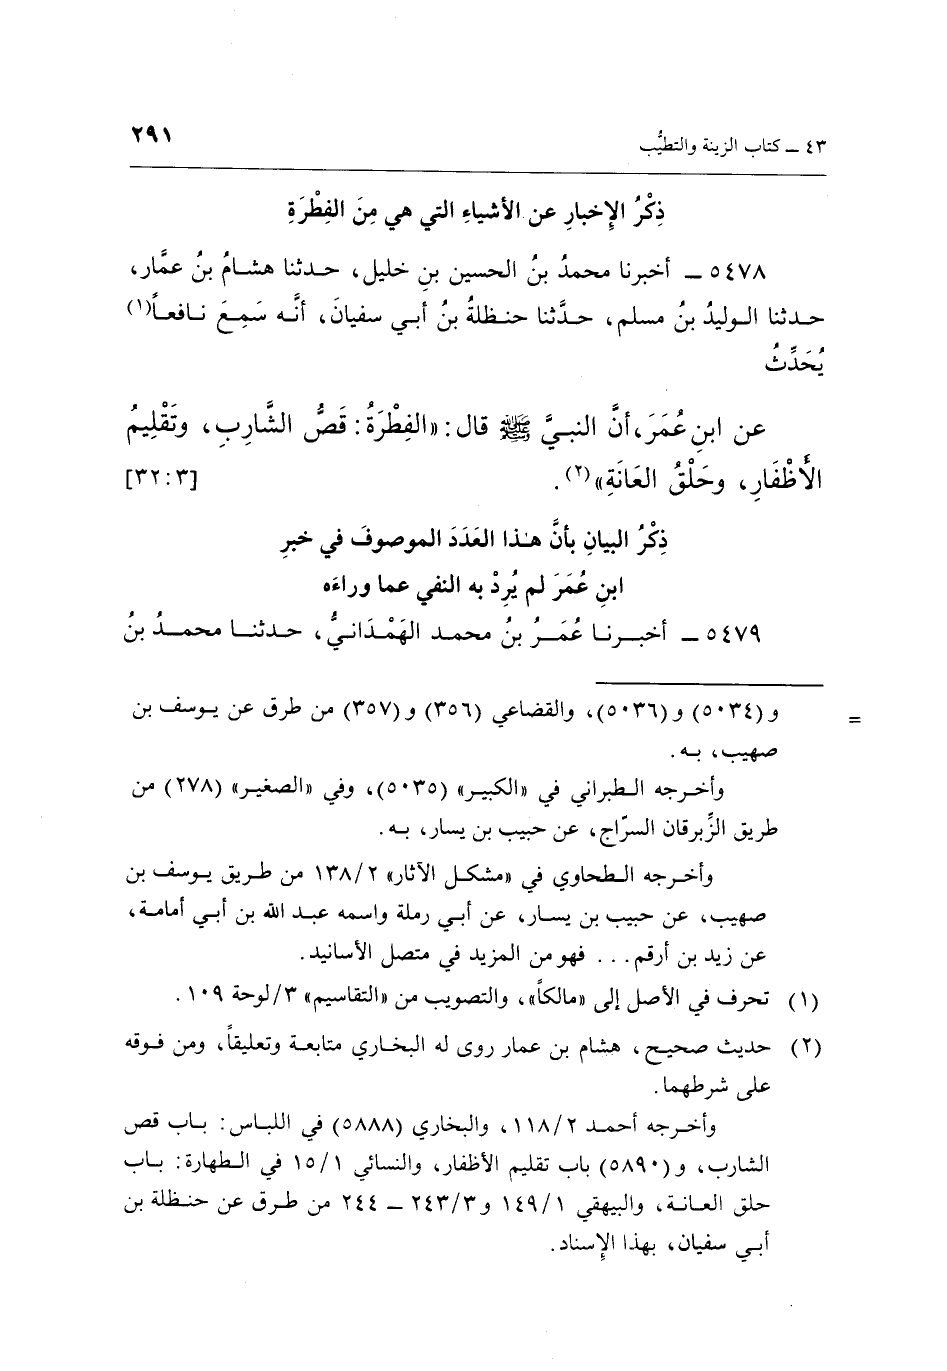 ٤٣ ــ كتاب الزينة والتطيُّب ٢٩١
ذِكْرُ الإِخبارِ عن الأشياءِ التي هي مِنَ الفِطْرَةِ
٥٤٧٨ ــ أخبرنا محمدُ بنُ الحسين بنِ خليل، حدثنا هشامُ بنُ عمَّار،
حدثنا الوليدُ بنُ مسلم، حدَّثنا حنظلةُ بنُ أبي سفيانَ، أنَّه سَمِعَ نافعاً(١)
يُحَدِّثُ
عن ابنِ عُمَرَ، أنَّ النبيَّ ﷺ قال: «الفِطْرَةُ: قَصُّ الشَّارِبِ، وتَقْلِيمُ
الأَظْفَارِ، وحَلْقُ العَانَةِ»(٢). [٣: ٣٢]
ذِكْرُ البيانِ بأنَّ هذا العَدَدَ الموصوفَ في خبرِ
ابنِ عُمَرَ لم يُرِدْ به النفي عما وراءَه
٥٤٧٩ ــ أخبرنا عُمَرُ بنُ محمد الهَمْدَانيُّ، حدثنا محمدُ بنُ
= و (٥٠٣٤) و (٥٠٣٦)، والقضاعي (٣٥٦) و (٣٥٧) من طرق عن يوسف بن
صهيب، به.
وأخرجه الطبراني في «الكبير» (٥٠٣٥)، وفي «الصغير» (٢٧٨) من
طريق الزِّبرقان السرّاج، عن حبيب بن يسار، به.
وأخرجه الطحاوي في «مشكل الآثار» ١٣٨/٢ من طريق يوسف بن
صهيب، عن حبيب بن يسار، عن أبي رملة واسمه عبد الله بن أبي أمامة،
عن زيد بن أرقم... فهو من المزيد في متصل الأسانيد.
(١) تحرف في الأصل إلى «مالكاً»، والتصويب من «التقاسيم» ٣/لوحة ١٠٩.
(٢) حديث صحيح، هشام بن عمار روى له البخاري متابعة وتعليقاً، ومن فوقه
على شرطهما.
وأخرجه أحمد ١١٨/٢، والبخاري (٥٨٨٨) في اللباس: باب قص
الشارب، و (٥٨٩٠) باب تقليم الأظفار، والنسائي ١٥/١ في الطهارة: باب
حلق العانة، والبيهقي ١٤٩/١ و٢٤٣/٣ ــ ٢٤٤ من طرق عن حنظلة بن
أبي سفيان، بهذا الإسناد.